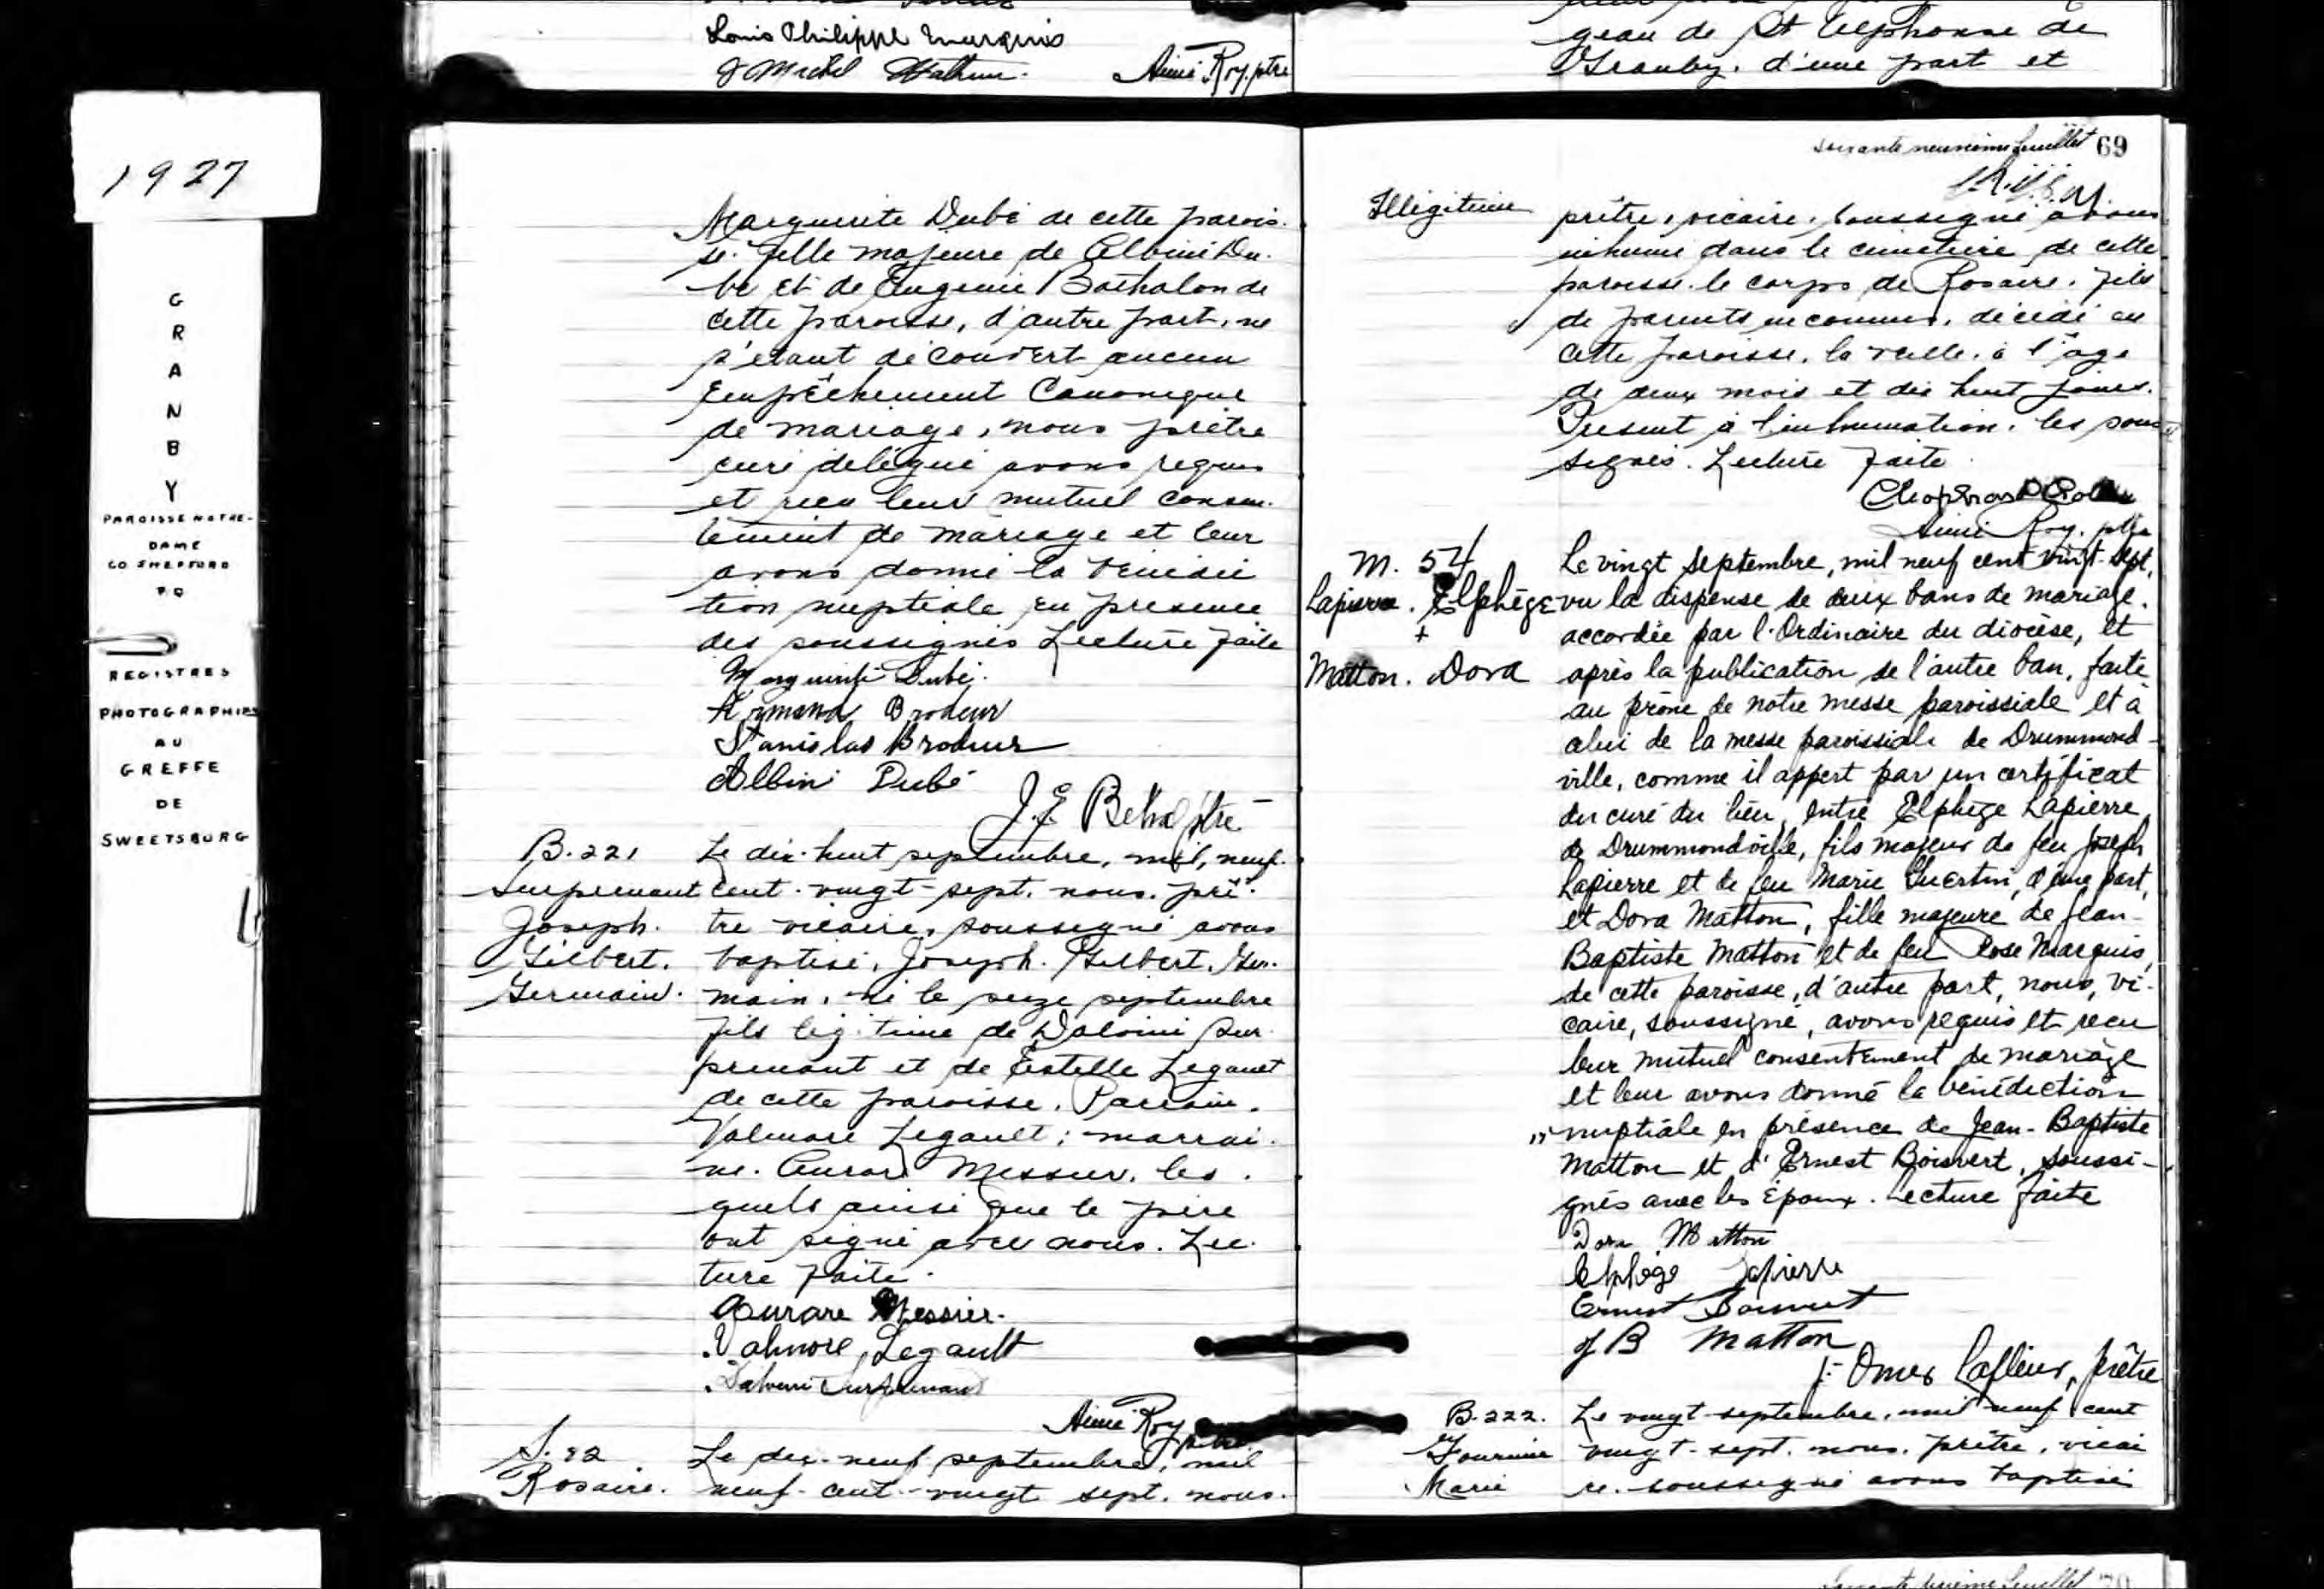 Louis Philippe Marquis
J Michel
Aimé Roy, ptre
geau de St Alphonse de
Granby, d'une part et
1927
GRANBY
PAROISSE NOTRE-
DAME
CO SHEFFORD
P Q
REGISTRES
PHOTOGRAPHIÉS
AU
GREFFE
DE
SWEETSBURG
Marguerite Dubé de cette parois-
se. fille majeure de Albini Du-
bé et de Eugenie Bathalon de
cette paroisse, d'autre part, ne
s'étant découvert aucun
Empêchement Canonique
de mariage, nous prêtre
curé délégué avons requis
et reçu leur mutuel consen-
tement de mariage et leur
avons donné la bénédic
tion nuptiale en presence
des soussignés Lecture faite
Marguerite Dubé.
Armand Brodeur
Stanislas Brodeur
Albini Dubé
J. E. ptre
B. 221
Surprenant
Joseph.
Gilbert.
Germain.
Le dix-huit septembre, mil, neuf.
cent-vingt-sept. nous. prê-
tre vicaire, soussigné avons
baptisé, Joseph. Gilbert, Ger-
main, né le seize septembre
fils légitime de Dalvini Sur-
prenant et de Estelle Legault
de cette paroisse. Parrain.
Valmore Legault; marrai-
ne. Aurore Messier, les-
quels ainsi que le père
ont signé avec nous. Lec-
ture faite.
Aurore Messier.
Valmore Legault
Surprenant
Aimé Roy ptre
S. 82
Rosaire.
Le dix-neuf septembre, mil
neuf-cent-vingt sept. nous.
soixante neuvième feuillet 69
Illégitime
prêtre, vicaire, soussigné avons
inhumé dans le cimetière de cette
paroisse le corps de Rosaire. fils
de parents inconnus, décédé en
cette paroisse, la veille, à l'âge
de deux mois et dix huit jours.
Présent à l'inhumation. les sous-
signés. Lecture faite.
Aimé Roy. ptre
M. 54
Lapierre. Elphège
+
Matton. Dora
Le vingt septembre, mil neuf cent vingt-sept,
vu la dispense de deux bans de mariage.
accordée par l'Ordinaire du diocèse, et
après la publication de l'autre ban, faite
au prône de notre messe paroissiale et à
celui de la messe paroissiale de Drummond-
ville, comme il appert par un certificat
du curé du lieu, entre Elphège Lapierre
de Drummondville, fils majeur de feu Joseph
Lapierre et de feu Marie Guertin, d'une part,
et Dora Matton, fille majeure de Jean-
Baptiste Matton et de feu Rose Marquis,
de cette paroisse, d'autre part, nous, vi-
caire, soussigné, avons requis et reçu
leur mutuel consentement de mariage
et leur avons donné la bénédiction
nuptiale en présence de Jean-Baptiste
Matton et d'Ernest Boisvert, soussi-
gnés avec les Époux. Lecture faite
Dora Matton
Elphège Lapierre
Ernest Boisvert
J B Matton
J. Omer Lafleur, prêtre
B. 222.
Fournier
Marie
Le vingt-septembre, mil neuf cent
vingt-sept. nous. prêtre, vicai
re. soussigné avons baptisé